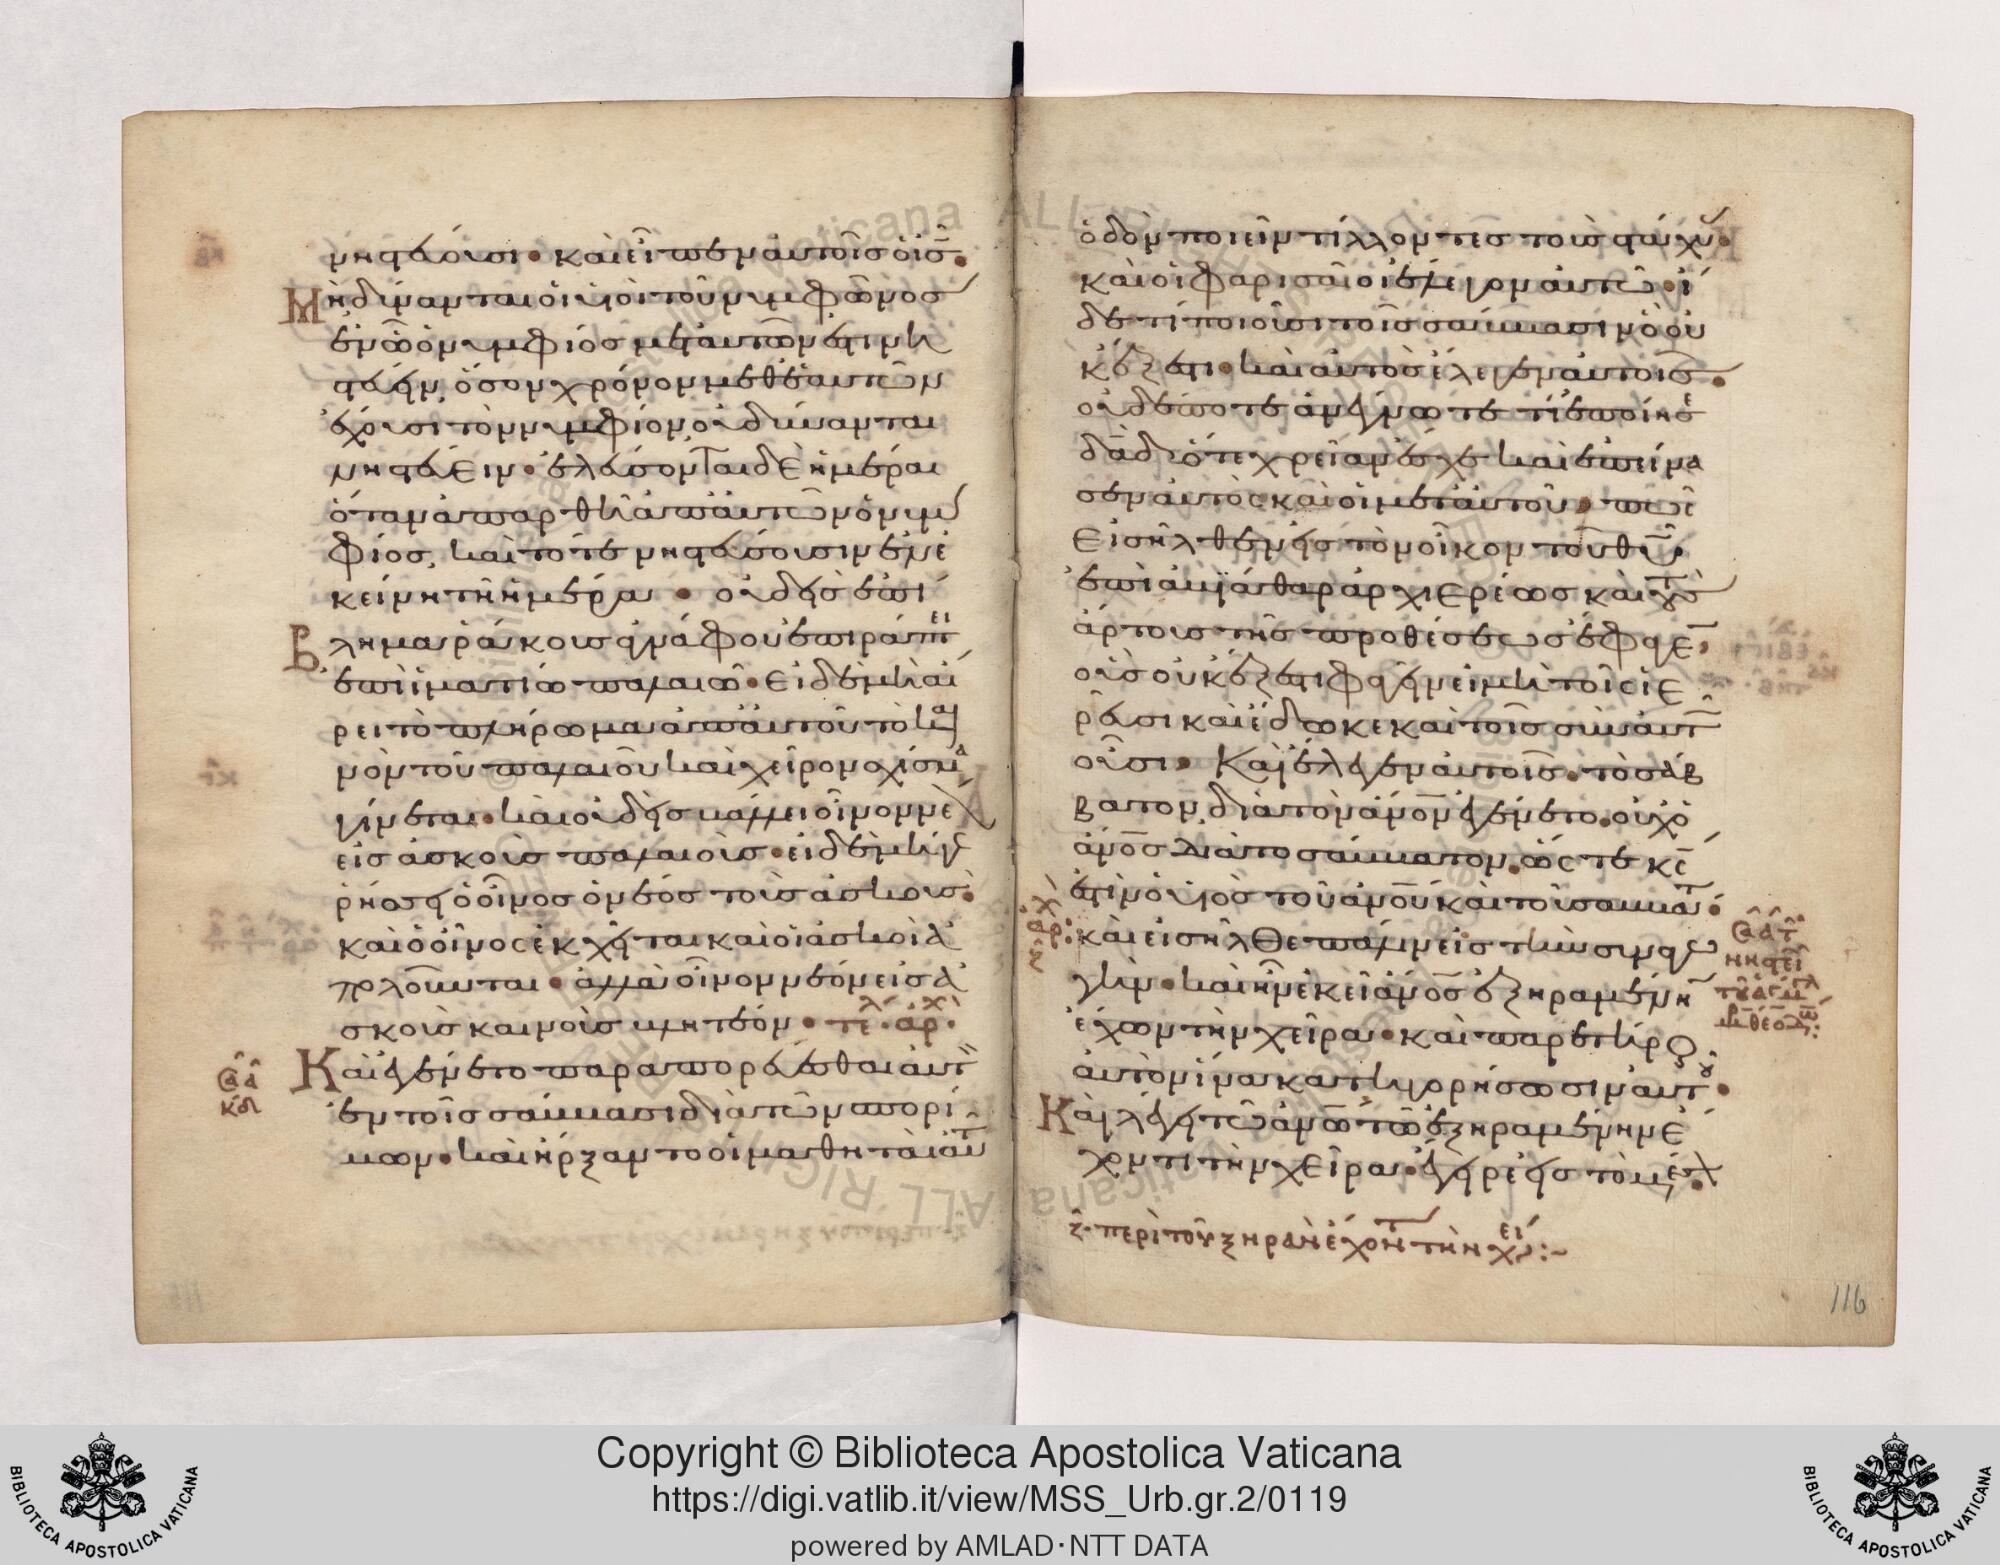 νηστεύουσι· καὶ εἶπεν αὐτοῖς ὁ ἰ̅ς̅·
Μὴ δύνανται οἱ υἱοὶ τοῦ νυμφῶνος
ἐν ᾧ ὁ νυμφίος μετ' αὐτῶν ἐστι νη
στεύειν, ὅσον χρόνον μεθ' ἑαυτῶν
ἔχουσι τὸν νυμφίον οὐ δύνανται
νηστεύειν· ἐλεύσονται δὲ ἡμέραι
ὅταν ἀπαρθῇ ἀπ' αὐτῶν ὁ νυμ
φίος, καὶ τότε νηστεύσουσιν ἐν ἐ
κείνη τῆ ἡμέρα· οὐδεὶς ἐπί
βλημα ῥάκους ἀγνάφου ἐπιράπτει
ἐπὶ ἱματίω παλαιῶ· εἰ δὲ μὴ αἴ
ρει τὸ πλήρωμα ἀπ' αὐτοῦ τὸ και
νὸν τοῦ παλαιοῦ καὶ χεῖρον σχίσμα
γίνεται· καὶ οὐδεὶς βάλλει οἶνον νέον
εἰς ἀσκοὺς παλαιούς· εἰ δὲ μή γε
ῥήσσει ὁ οἶνος ὁ νέος τοὺς ἀσκούς·
καὶ ὁ οἶνος ἐκχεῖται καὶ οἱ ἀσκοὶ ἀ
πολοῦνται· ἀλλὰ οἶνον νέον εἰς ἀ
σκοὺς καινοὺς βλητέον· τέλ· ἀρχ·
Καὶ ἐγένετο παραπορεύεσθαι αὐτὸν
ἐν τοῖς σάββασι διὰ τῶν σπορί
μων· καὶ ἤρξαντο οἱ μαθηταὶ αὐτοῦ
ὁδὸν ποιεῖν τίλλοντες τοὺς στάχυς·
καὶ οἱ φαρισαῖοι ἔλεγον αὐτῶ· ἴ
δε τί ποιοῦσι τοῖς σάββασιν ὃ οὐ
κ ἔξεστι· καὶ αὐτὸς ἔλεγεν αὐτοῖς·
οὐδέποτε ἀνέγνωτε τί ἐποίησε
δα̅δ̅ ὅτε χρείαν ἔσχε καὶ ἐπείνα
σεν αὐτὸς καὶ οἱ μετ' αὐτοῦ· πῶς
εἰσῆλθεν εἰς τὸν οἶκον τοῦ θυ
ἐπὶ ἀβιάθαρ ἀρχιερέως καὶ τοὺς
ἄρτους τῆς προθέσεως ἔφαγε,
οὓς οὐκ ἔξεστι φαγεῖν εἰ μὴ τοῖς ἱε
ρεῦσι καὶ ἔδωκε καὶ τοῖς σὺν αὐτῶ
οὖσι· Καὶ ἔλεγεν αὐτοῖς· τὸ σάβ
βατον διὰ τὸν ἄνο̅ν̅ ἐγένετο· οὐχ ὁ
ἄνο̅ς̅ διὰ τὸ σάββατον, ὥστε κ̅ς̅
ἐστιν ὁ υἱὸς τοῦ ἀνο̅υ̅ καὶ τοῦ σαββάτου·
καὶ εἰσῆλθε πάλιν εἰς τὴν συναγω
γήν· καὶ ἦν ἐκεῖ ἄνο̅ς̅ ἐξηραμμένην
ἔχων τὴν χεῖρα· καὶ παρετήρουν
αὐτὸν ἵνα κατηγορήσωσιν αὐτοῦ·
Καὶ λέγει τῶ ἀνω̅ τῶ ἐξηραμμένην ἔ
χοντι τὴν χεῖρα· ἔγειρε εἰς τὸ μέσον·
ζ· περὶ τοῦ ξηρὰν ἔχοντος τὴν χεῖρα:~
116
Copyright © Biblioteca Apostolica Vaticana
https://digi.vatlib.it/view/MSS_Urb.gr.2/0119
powered by AMLAD·NTT DATA
BIBLIOTECA APOSTOLICA VATICANA
BIBLIOTECA APOSTOLICA VATICANA